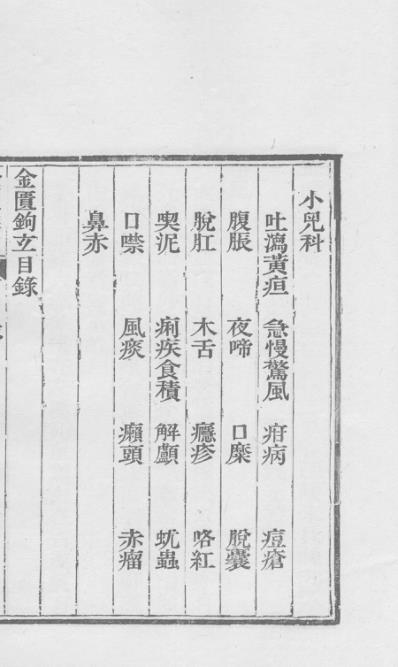 小兒科
吐瀉黃疸 急慢驚風 疳病 痘瘡
腹脹 夜啼 口糜 脫囊
脫肛 木舌 癮疹 咯紅
喫泥 痢疾食積 解顱 蚘蟲
口噤 風痰 癩頭 赤瘤
鼻赤
金匱鉤玄目錄